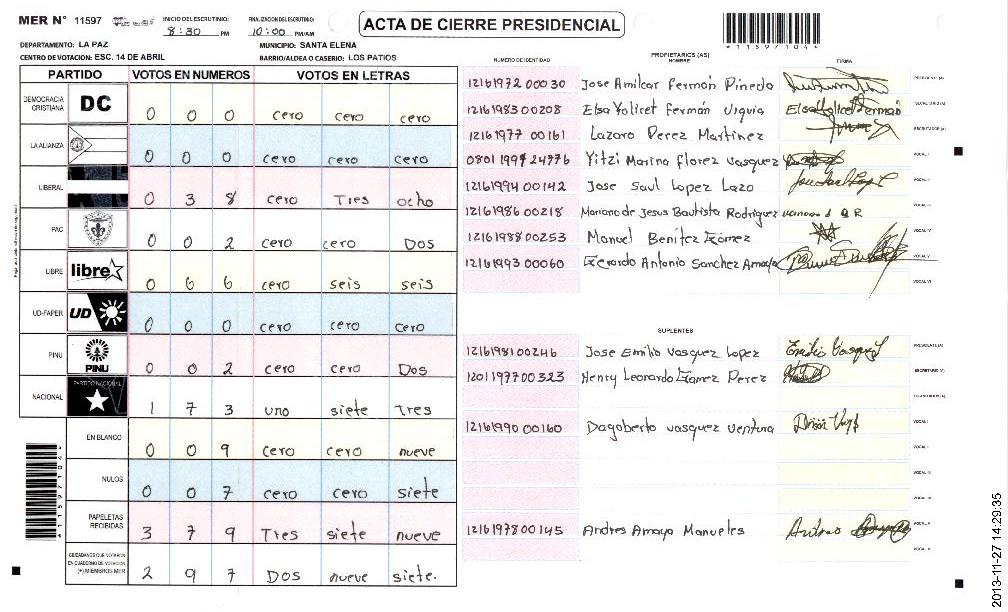 MER N° 11597
INICIO DEL ESCRUTINIO: 8:30 PM
FINALIZACION DEL ESCRUTINIO: 10:00 PM/AM
ACTA DE CIERRE PRESIDENCIAL
*11597104*
DEPARTAMENTO: LA PAZ
MUNICIPIO: SANTA ELENA
CENTRO DE VOTACION: ESC. 14 DE ABRIL
BARRIO/ALDEA O CASERIO: LOS PATIOS
PARTIDO VOTOS EN NUMEROS VOTOS EN LETRAS
DEMOCRACIA CRISTIANA DC 0 0 0 cero cero cero
LA ALIANZA 0 0 0 cero cero cero
LIBERAL 0 3 8 cero Tres ocho
PAC 0 0 2 cero cero Dos
LIBRE libre 0 6 6 cero seis seis
UD-FAPER UD 0 0 0 cero cero cero
PINU PINU 0 0 2 cero cero Dos
NACIONAL PARTIDO NACIONAL 1 7 3 uno siete Tres
EN BLANCO 0 0 9 cero cero nueve
NULOS 0 0 7 cero cero siete
PAPELETAS RECIBIDAS 3 7 9 Tres siete nueve
CIUDADANOS QUE VOTARON EN CUADERNO DE VOTACION (+) MIEMBROS MER 2 9 7 DOS nueve siete.
*11597104*
NUMERO DE IDENTIDAD PROPIETARIOS (AS) NOMBRE FIRMA
1216197200030 Jose Amilcar Fermán Pineda PRESIDENTE (A)
1216198300208 Elsa Yolicet Fermán Urquia SECRETARIO (A)
1216197700161 Lazaro Perez Martinez ESCRUTADOR (A)
0801199924776 Yitzi Marina florez vasquez VOCAL I
1216199400142 Jose Saul Lopez Lazo VOCAL II
1216198600218 Mariano de Jesus Bautista Rodriguez VOCAL III
1216198800253 Manuel Benitez Gómez VOCAL IV
1216199300060 Gerardo Antonio Sanchez Amaya VOCAL V
VOCAL VI
SUPLENTES
1216198100246 Jose Emilio vasquez Lopez Emilio Vasquez PRESIDENTE (A)
1201197700323 Henry Leonardo Gamez Perez SECRETARIO (A)
ESCRUTADOR (A)
1216199000160 Dagoberto vasquez ventura VOCAL I
VOCAL II
VOCAL III
VOCAL IV
1216197800145 Andres Amaya Manueles VOCAL V
VOCAL VI
2013-11-27 14:29:35